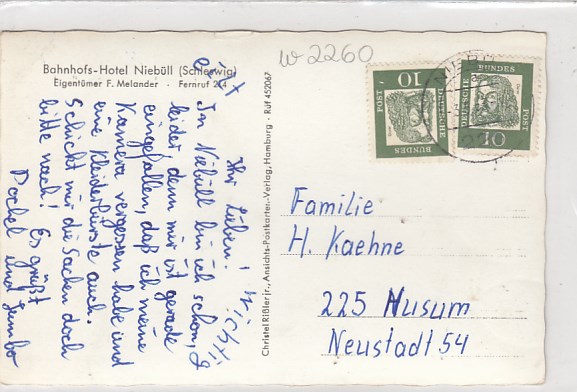 w 2260
Bahnhofs-Hotel Niebüll (Schleswig)
Eigentümer F. Melander · Fernruf 214
Ihr Lieben! Wichtig
In Niebüll bin ich schon
leider, denn mir ist gerade
eingefallen, daß ich meine
Kamera vergessen habe und
eine Kleiderbürste auch.
Schickt mir die Sachen doch
bitte nach! Es grüßt
Dochel und Jumbo
Christel Rißler jr., Ansichts-Postkarten-Verlag, Hamburg · Ruf 452067
10
POST
DEUTSCHE
BUNDES
10
POST
DEUTSCHE
BUNDES
NIEB
Familie
H. Kaehne
225 Husum
Neustadt 54